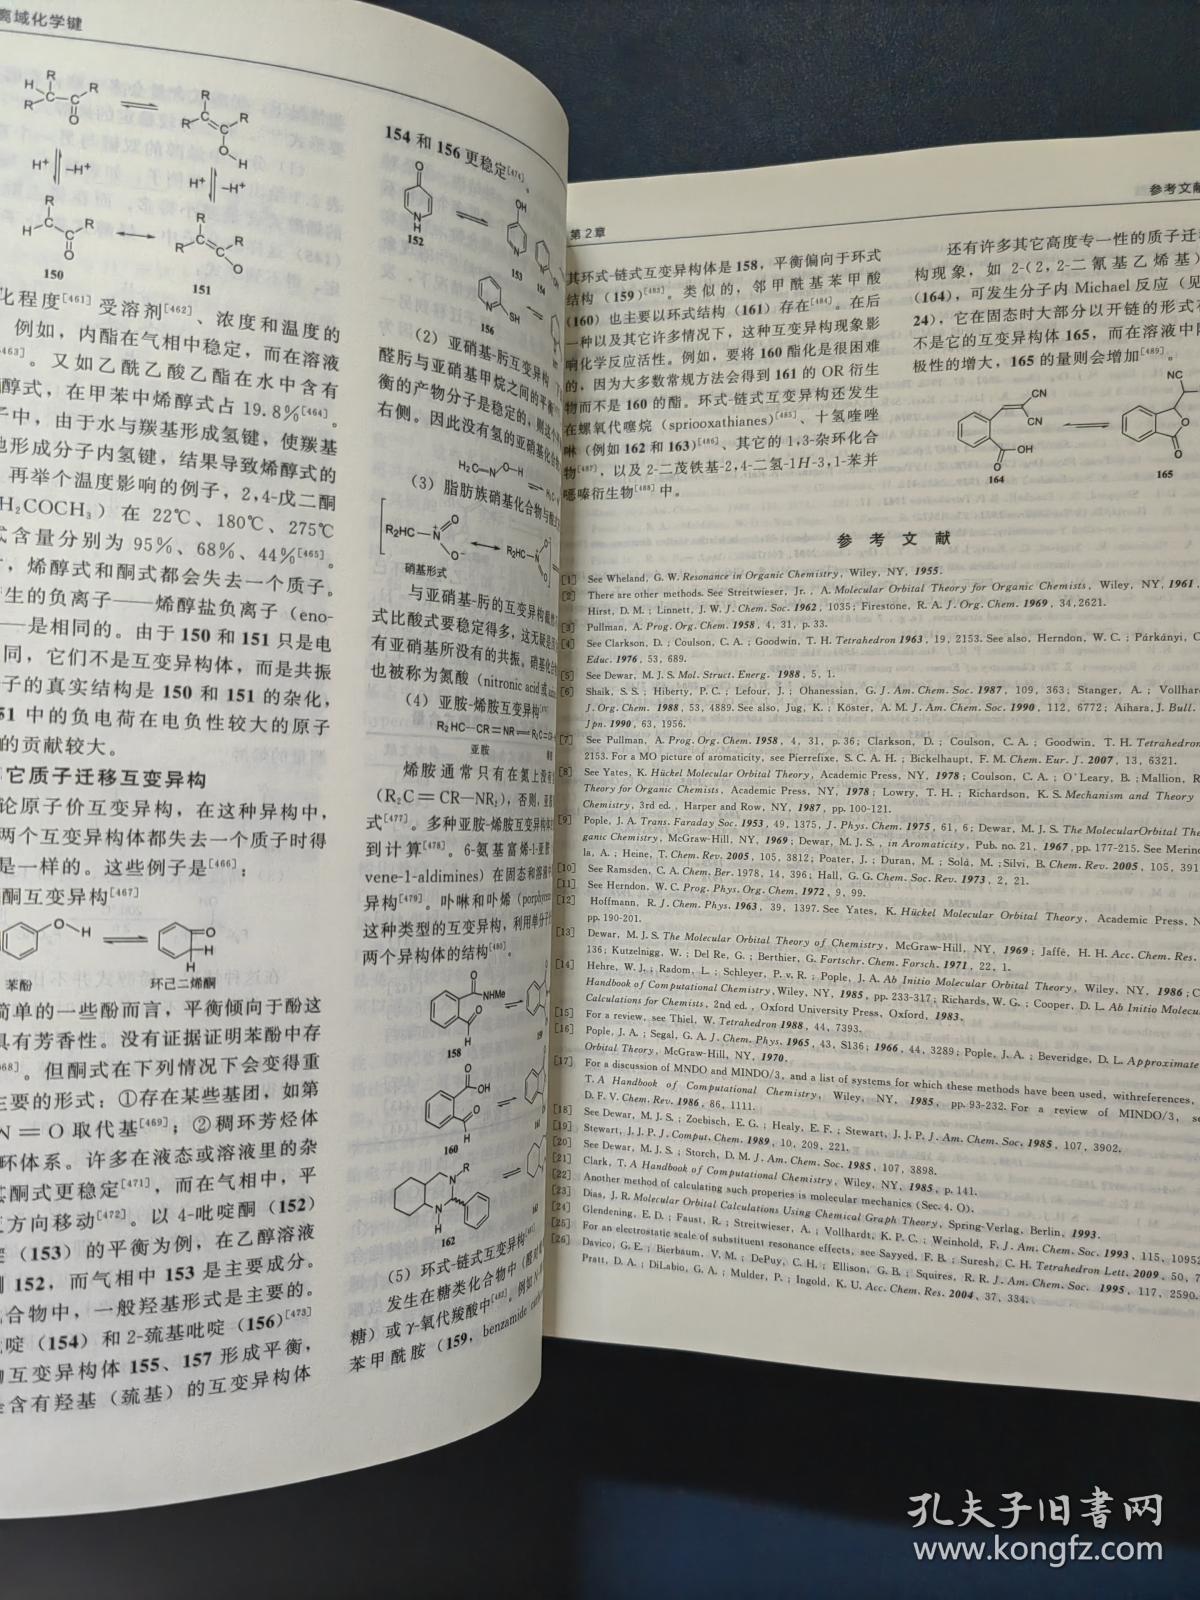 离域化学键
R
H
R
R
O
R
R
R
O
H
H⁺
-H⁺
H⁺
-H⁺
R
H
R
O
R
R
R
O
150
151
化程度[461]受溶剂[462]、浓度和温度的
例如，内酯在气相中稳定，而在溶液
463]。又如乙酰乙酸乙酯在水中含有
醇式，在甲苯中烯醇式占 19.8%[464]。
子中，由于水与羰基形成氢键，使羰基
地形成分子内氢键，结果导致烯醇式的
再举个温度影响的例子，2,4-戊二酮
H₂COCH₃）在 22℃、180℃、275℃
式含量分别为 95%、68%、44%[465]。
，烯醇式和酮式都会失去一个质子。
生的负离子——烯醇盐负离子（eno-
——是相同的。由于 150 和 151 只是电
同，它们不是互变异构体，而是共振
子的真实结构是 150 和 151 的杂化，
51 中的负电荷在电负性较大的原子
的贡献较大。
它质子迁移互变异构
论原子价互变异构，在这种异构中，
两个互变异构体都失去一个质子时得
是一样的。这些例子是[466]：
酮互变异构[467]
O—H
O
H
H
苯酚
环己二烯酮
简单的一些酚而言，平衡倾向于酚这
具有芳香性。没有证据证明苯酚中存
68]。但酮式在下列情况下会变得重
主要的形式：①存在某些基团，如第
N＝O 取代基[469]；②稠环芳烃体
环体系。许多在液态或溶液里的杂
其酮式更稳定[471]，而在气相中，平
方向移动[472]。以 4-吡啶酮（152）
（153）的平衡为例，在乙醇溶液
152，而气相中 153 是主要成分。
合物中，一般羟基形式是主要的。
啶（154）和 2-巯基吡啶（156）[473]
互变异构体 155、157 形成平衡，
含有羟基（巯基）的互变异构体
154 和 156 更稳定[474]。
O
N
H
152
OH
N
153
N
154
N
SH
156
（2）亚硝基-肟互变异构
醛肟与亚硝基甲烷之间的平衡
衡的产物分子是稳定的，则这个
右侧。因此没有氢的亚硝基化合物
H₂C—N
O—H
（3）脂肪族硝基化合物与酸式
R₂HC—N
O
O⁻
R₂HC—N
硝基形式
与亚硝基-肟的互变异构
式比酸式要稳定得多，这无疑是
有亚硝基所没有的共振。硝基化合
也被称为氮酸（nitronic acid 或
（4）亚胺-烯胺互变异构
R₂HC—CR＝NR
亚胺
烯胺通常只有在氮上没有
（R₂C＝CR—NR₂），否则，亚胺
式[477]。多种亚胺-烯胺互变异构体
到计算[478]。6-氨基富烯-1-亚胺
vene-1-aldimines）在固态和溶液中
异构[479]。卟啉和卟烯（porphyc
这种类型的互变异构，利用单分子
两个异构体的结构[480]。
O
NHMe
O
H
158
O
OH
O
H
160
R
N
N
H
162
（5）环式-链式互变异构[481]
发生在糖类化合物中（醛
糖）或 γ-氧代羧酸中[482]。例如
苯甲酰胺（159，benzamide
第 2 章
参考文献
其环式-链式互变异构体是 158，平衡偏向于环式
结构（159）[483]。类似的，邻甲酰基苯甲酸
（160）也主要以环式结构（161）存在[484]。在后
一种以及其它许多情况下，这种互变异构现象影
响化学反应活性。例如，要将 160 酯化是很困难
的，因为大多数常规方法会得到 161 的 OR 衍生
物而不是 160 的酯。环式-链式互变异构还发生
在螺氧代噻烷（spriooxathianes）[485]、十氢喹唑
啉（例如 162 和 163）[486]、其它的 1,3-杂环化合
物[487]，以及 2-二茂铁基-2,4-二氢-1H-3,1-苯并
噁嗪衍生物[488]中。
还有许多其它高度专一性的质子迁
构现象，如 2-(2,2-二氰基乙烯基)
（164），可发生分子内 Michael 反应（见
24），它在固态时大部分以开链的形式
不是它的互变异构体 165，而在溶液中
极性的增大，165 的量则会增加[489]。
CN
CN
OH
O
164
NC
O
O
165
参 考 文 献
[1] See Wheland, G. W. Resonance in Organic Chemistry, Wiley, NY, 1955.
[2] There are other methods. See Streitwieser, Jr., A. Molecular Orbital Theory for Organic Chemists, Wiley, NY, 1961,
Hirst, D. M.; Linnett, J. W. J. Chem. Soc. 1962, 1035; Firestone, R. A. J. Org. Chem. 1969, 34, 2621.
[3] Pullman, A. Prog. Org. Chem. 1958, 4, 31, p. 33.
[4] See Clarkson, D.; Coulson, C. A.; Goodwin, T. H. Tetrahedron 1963, 19, 2153. See also, Herndon, W. C.; Párkányi, C.
Educ. 1976, 53, 689.
[5] See Dewar, M. J. S. Mol. Struct. Energ. 1988, 5, 1.
[6] Shaik, S. S.; Hiberty, P. C.; Lefour, J.; Ohanessian, G. J. Am. Chem. Soc. 1987, 109, 363; Stanger, A.; Vollhard
J. Org. Chem. 1988, 53, 4889. See also, Jug, K.; Köster, A. M. J. Am. Chem. Soc. 1990, 112, 6772; Aihara, J. Bull.
Jpn. 1990, 63, 1956.
[7] See Pullman, A. Prog. Org. Chem. 1958, 4, 31, p. 36; Clarkson, D.; Coulson, C. A.; Goodwin, T. H. Tetrahedron
2153. For a MO picture of aromaticity, see Pierrefixe, S. C. A. H.; Bickelhaupt, F. M. Chem. Eur. J. 2007, 13, 6321.
[8] See Yates, K. Hückel Molecular Orbital Theory, Academic Press, NY, 1978; Coulson, C. A.; O'Leary, B.; Mallion, R.
Theory for Organic Chemists, Academic Press, NY, 1978; Lowry, T. H.; Richardson, K. S. Mechanism and Theory
Chemistry, 3rd ed., Harper and Row, NY, 1987, pp. 100-121.
[9] Pople, J. A. Trans. Faraday Soc. 1953, 49, 1375, J. Phys. Chem. 1975, 61, 6; Dewar, M. J. S. The MolecularOrbital The
ganic Chemistry, McGraw-Hill, NY, 1969; Dewar, M. J. S., in Aromaticity, Pub. no. 21, 1967, pp. 177-215. See Merino
la, A.; Heine, T. Chem. Rev. 2005, 105, 3812; Poater, J.; Duran, M.; Solá, M.; Silvi, B. Chem. Rev. 2005, 105, 391
[10] See Ramsden, C. A. Chem. Ber. 1978, 14, 396; Hall, G. G. Chem. Soc. Rev. 1973, 2, 21.
[11] See Herndon, W. C. Prog. Phys. Org. Chem. 1972, 9, 99.
[12] Hoffmann, R. J. Chem. Phys. 1963, 39, 1397. See Yates, K. Hückel Molecular Orbital Theory, Academic Press, N
pp. 190-201.
[13] Dewar, M. J. S. The Molecular Orbital Theory of Chemistry, McGraw-Hill, NY, 1969; Jaffé, H. H. Acc. Chem. Res.
136; Kutzelnigg, W.; Del Re, G.; Berthier, G. Fortschr. Chem. Forsch. 1971, 22, 1.
[14] Hehre, W. J.; Radom, L.; Schleyer, P. v. R.; Pople, J. A. Ab Initio Molecular Orbital Theory, Wiley, NY, 1986; C
Handbook of Computational Chemistry, Wiley, NY, 1985, pp. 233-317; Richards, W. G.; Cooper, D. L. Ab Initio Molecul
Calculations for Chemists, 2nd ed., Oxford University Press, Oxford, 1983.
[15] For a review, see Thiel, W. Tetrahedron 1988, 44, 7393.
[16] Pople, J. A.; Segal, G. A. J. Chem. Phys. 1965, 43, S136; 1966, 44, 3289; Pople, J. A.; Beveridge, D. L. Approximate
Orbital Theory, McGraw-Hill, NY, 1970.
[17] For a discussion of MNDO and MINDO/3, and a list of systems for which these methods have been used, withreferences,
T. A Handbook of Computational Chemistry, Wiley, NY, 1985, pp. 93-232. For a review of MINDO/3, se
D. F. V. Chem. Rev. 1986, 86, 1111.
[18] See Dewar, M. J. S.; Zoebisch, E. G.; Healy, E. F.; Stewart, J. J. P. J. Am. Chem. Soc. 1985, 107, 3902.
[19] Stewart, J. J. P. J. Comput. Chem. 1989, 10, 209, 221.
[20] See Dewar, M. J. S.; Storch, D. M. J. Am. Chem. Soc. 1985, 107, 3898.
[21] Clark, T. A Handbook of Computational Chemistry, Wiley, NY, 1985, p. 141.
[22] Another method of calculating such properies is molecular mechanics (Sec. 4. O).
[23] Dias, J. R. Molecular Orbital Calculations Using Chemical Graph Theory, Spring-Verlag, Berlin, 1993.
[24] Glendening, E. D.; Faust, R.; Streitwieser, A.; Vollhardt, K. P. C.; Weinhold, F. J. Am. Chem. Soc. 1993, 115, 10952
[25] For an electrostatic scale of substituent resonance effects, see Sayyed, F. B.; Suresh, C. H. Tetrahedron Lett. 2009, 50, 7
[26] Davico, G. E.; Bierbaum, V. M.; DePuy, C. H.; Ellison, G. B.; Squires, R. R. J. Am. Chem. Soc. 1995, 117, 2590.
Pratt, D. A.; DiLabio, G. A.; Mulder, P.; Ingold, K. U. Acc. Chem. Res. 2004, 37, 334.
孔夫子旧书网
www.kongfz.com